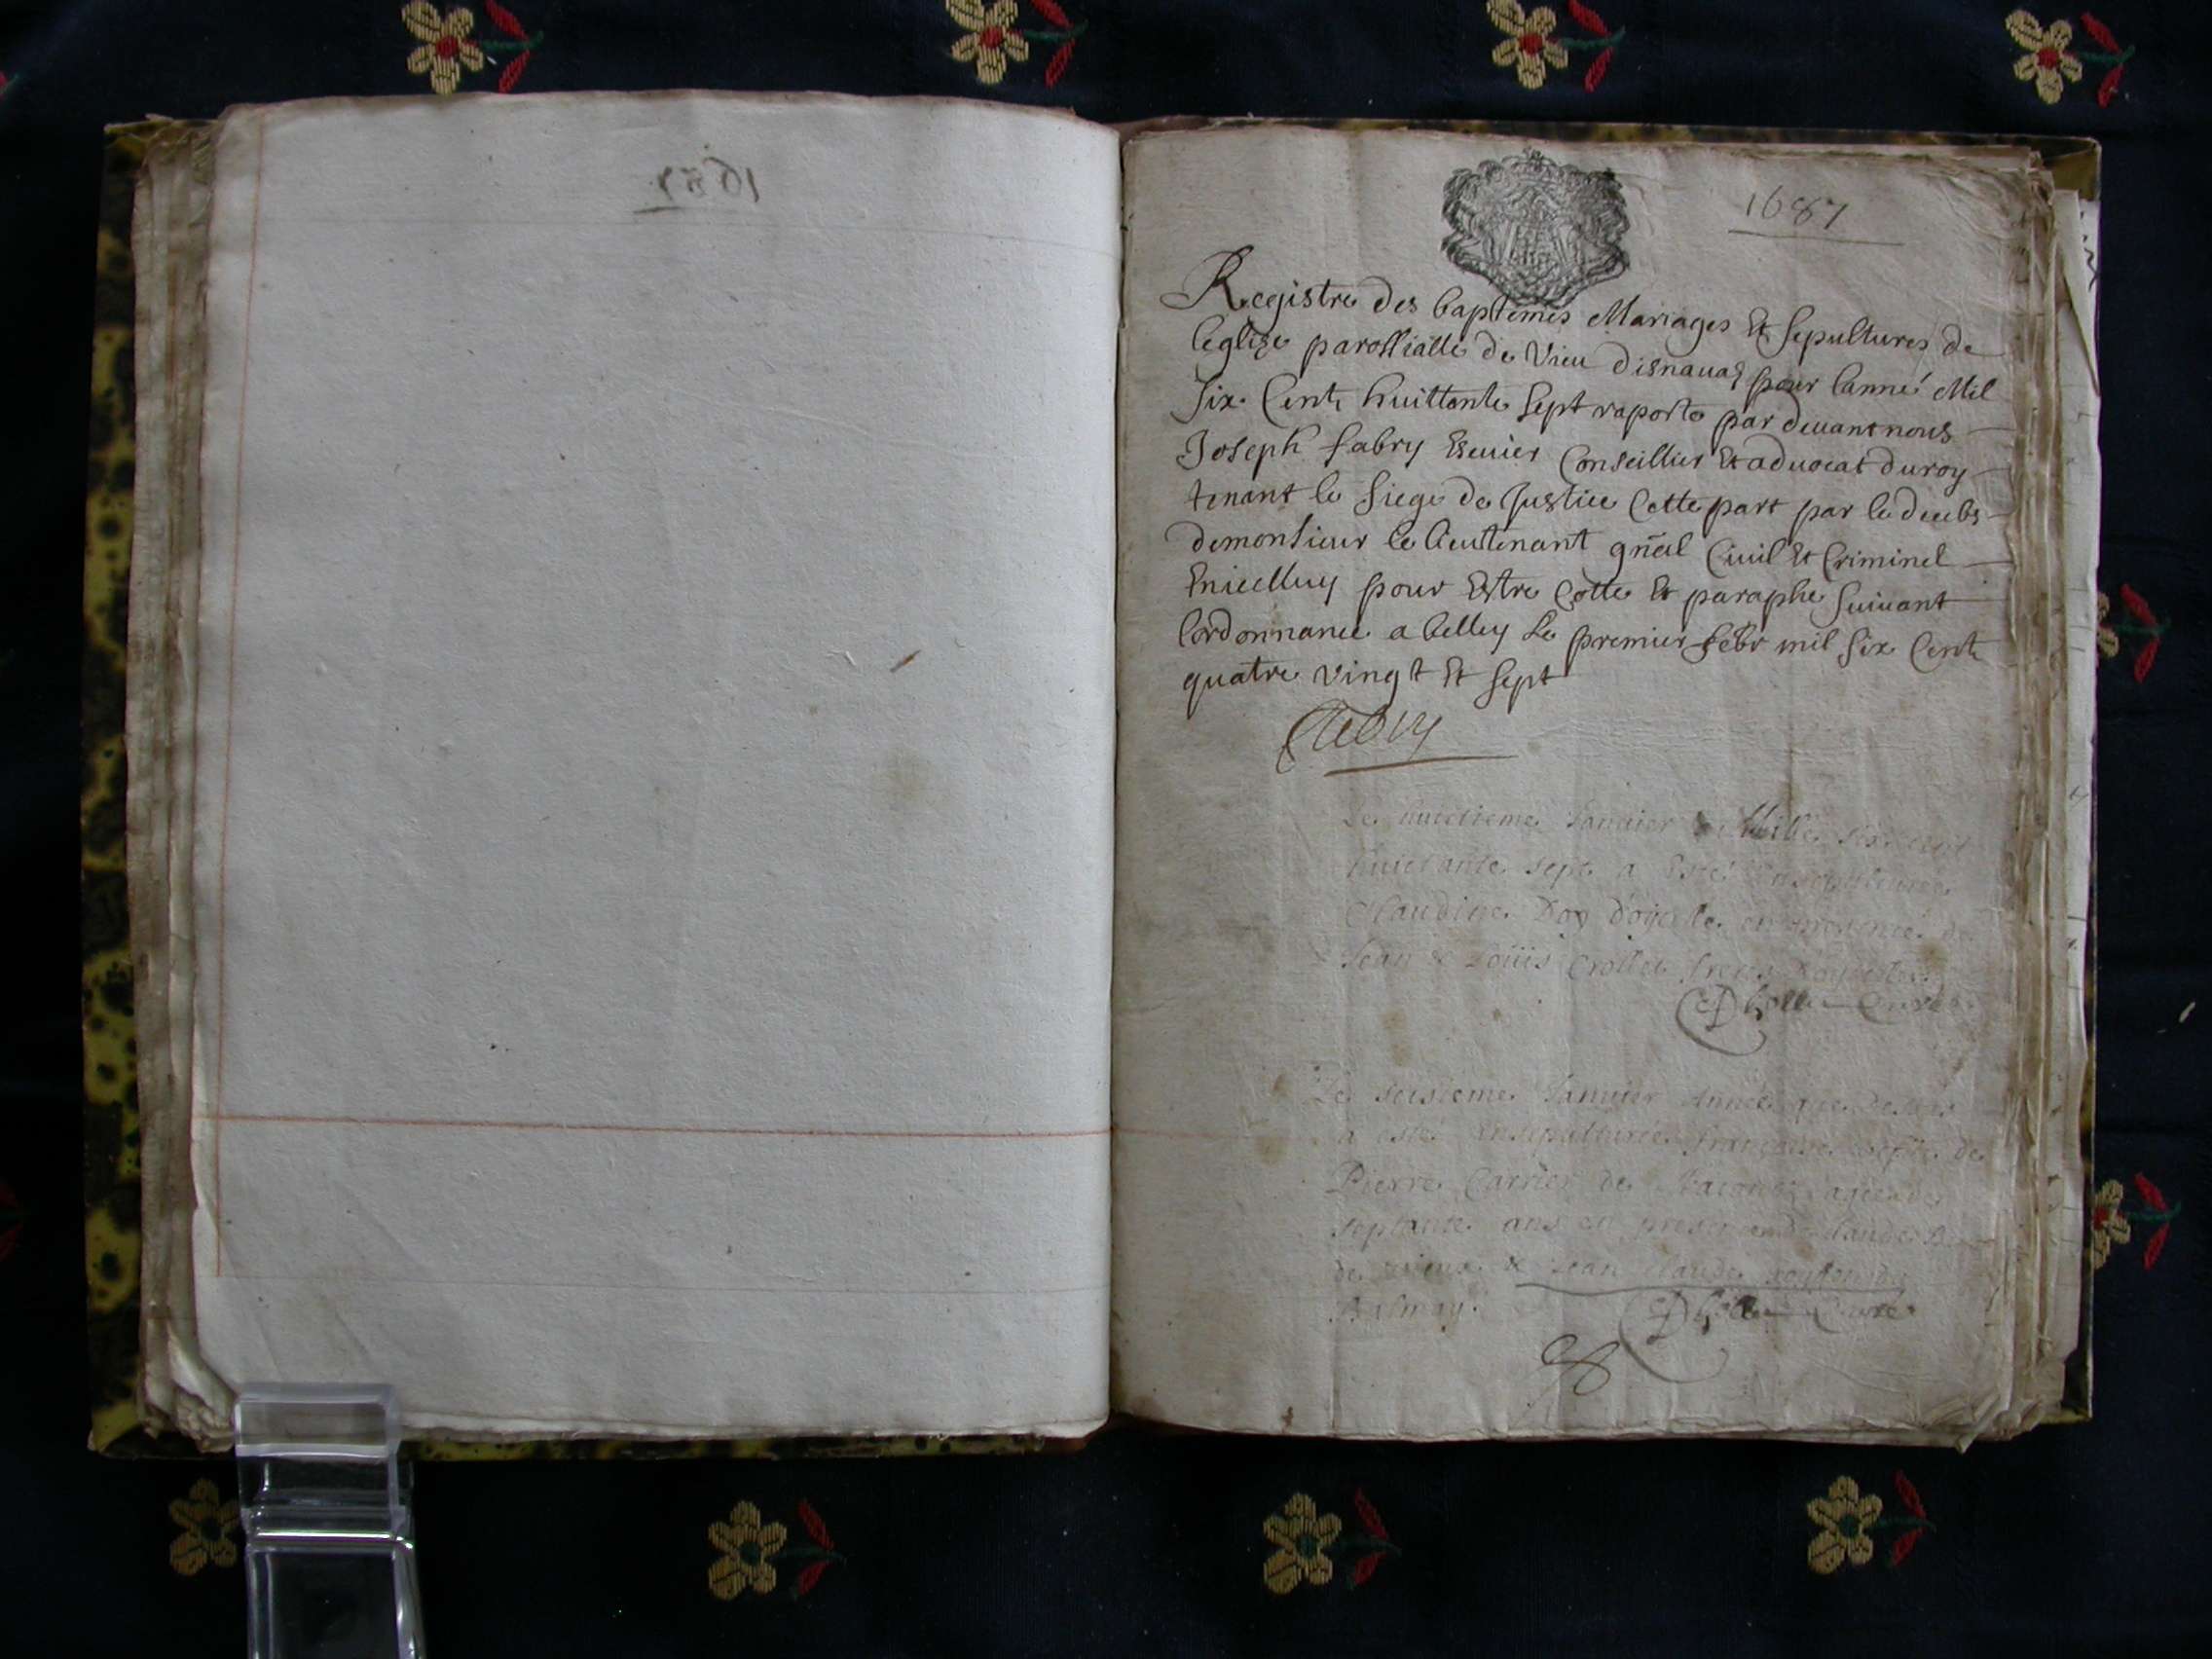 1687
1687
Registre des baptemes Mariages Et sepultures de
leglize parossialle de Vieu disnauaz pour lanneé Mil
six Cent huittante sept raporte par deuant nous
Joseph fabry Escuier Conseillier Et aduocat du roy
tenant le siege de Justice Cette part par le decebs
de monsieur le lieutenant gñal Ciuil Et Criminel
En icelluy pour Estre Cotte Et paraphe suiuant
lordonnance a belley Le premier febr mil six Cent
quatre vingt Et sept
fabry
Le huictieme Januier Mille six cent
huictante sept a esté ensepulturée
Claudine Doy en presence de
Jean & Loüis Crollet freres
Curé
Le seisieme Januier Année que dessus
a esté ensepulturée françoise de
Pierre Carrier de agée de
septante ans en presence de Claude
de vieu & Jean Claude
Balmay.
Curé